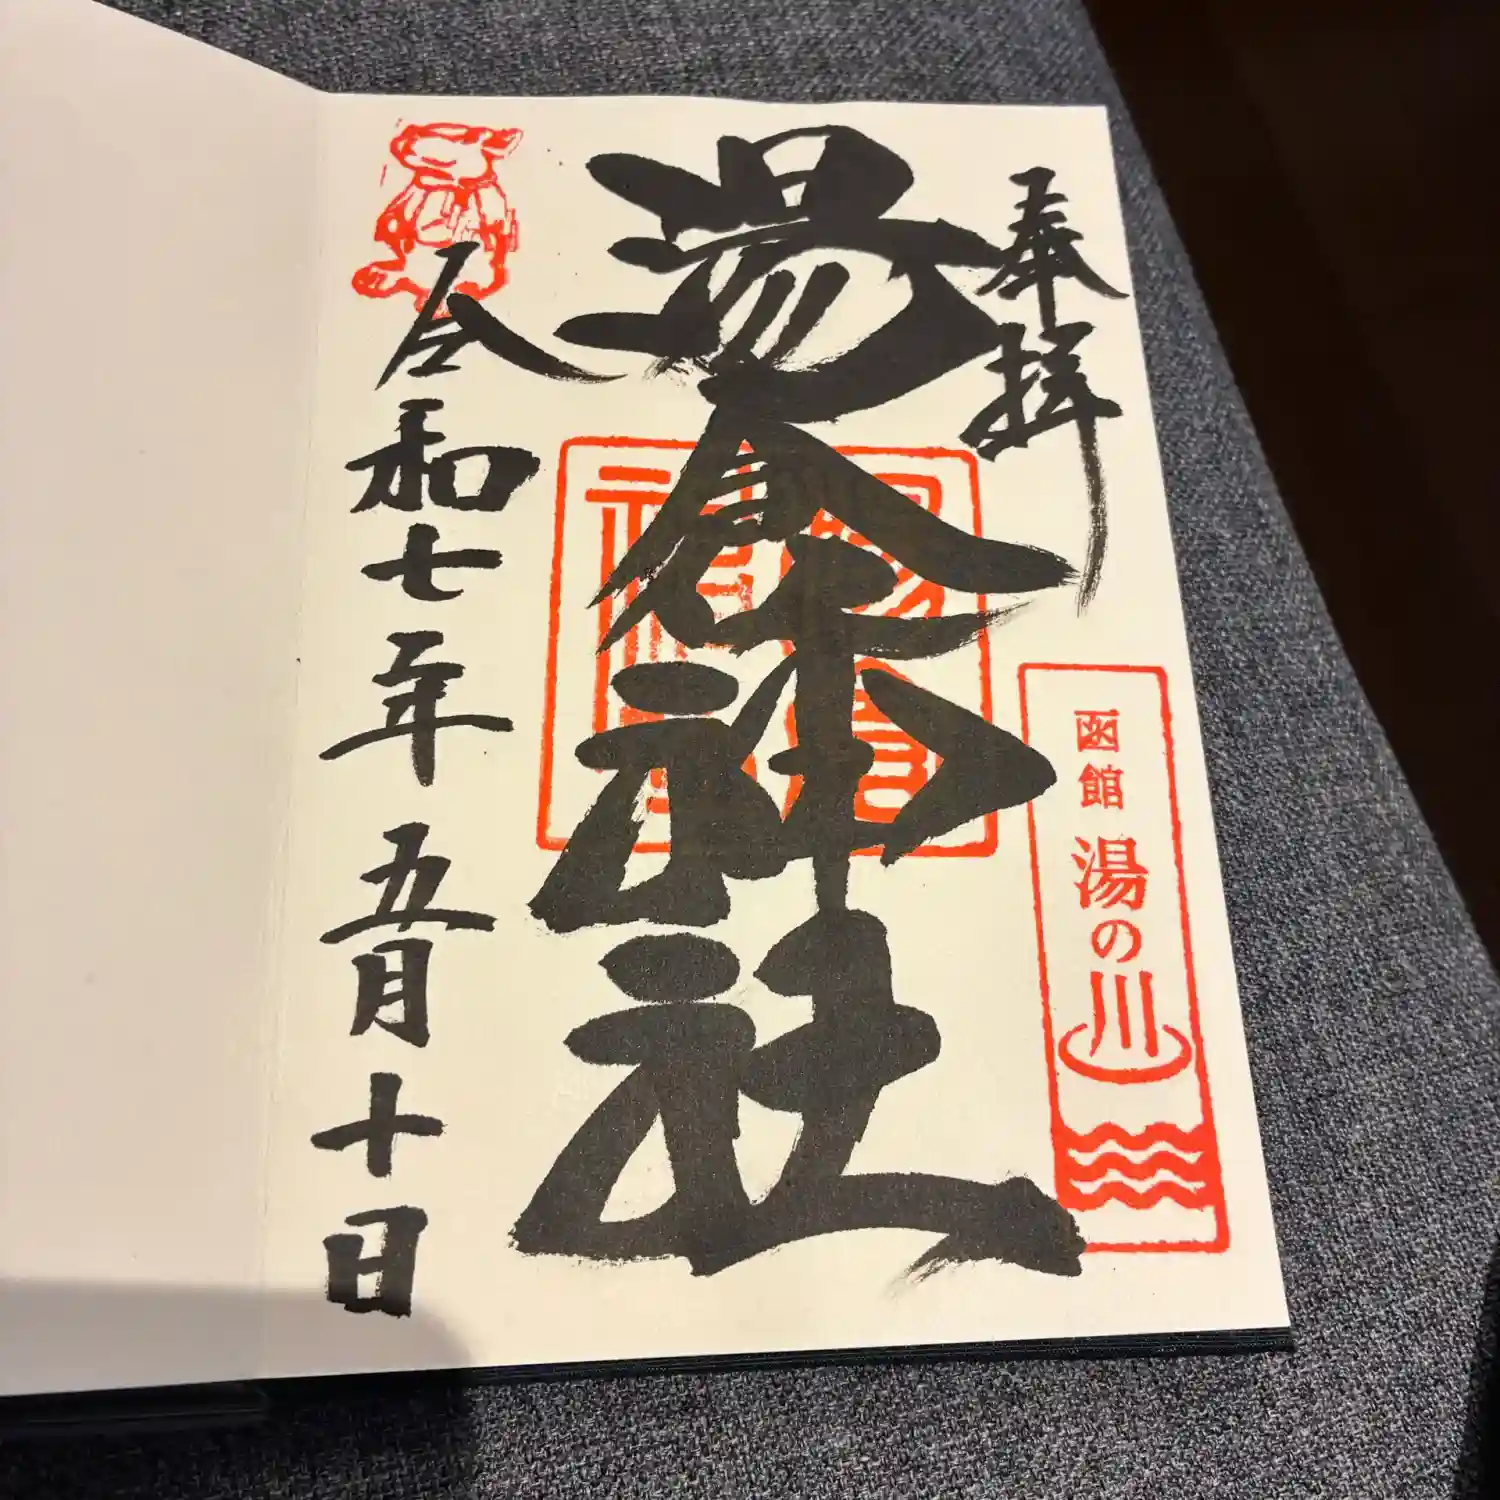 奉拝
函館 湯の川
湯倉神社
湯倉
神社
令和七年五月十日